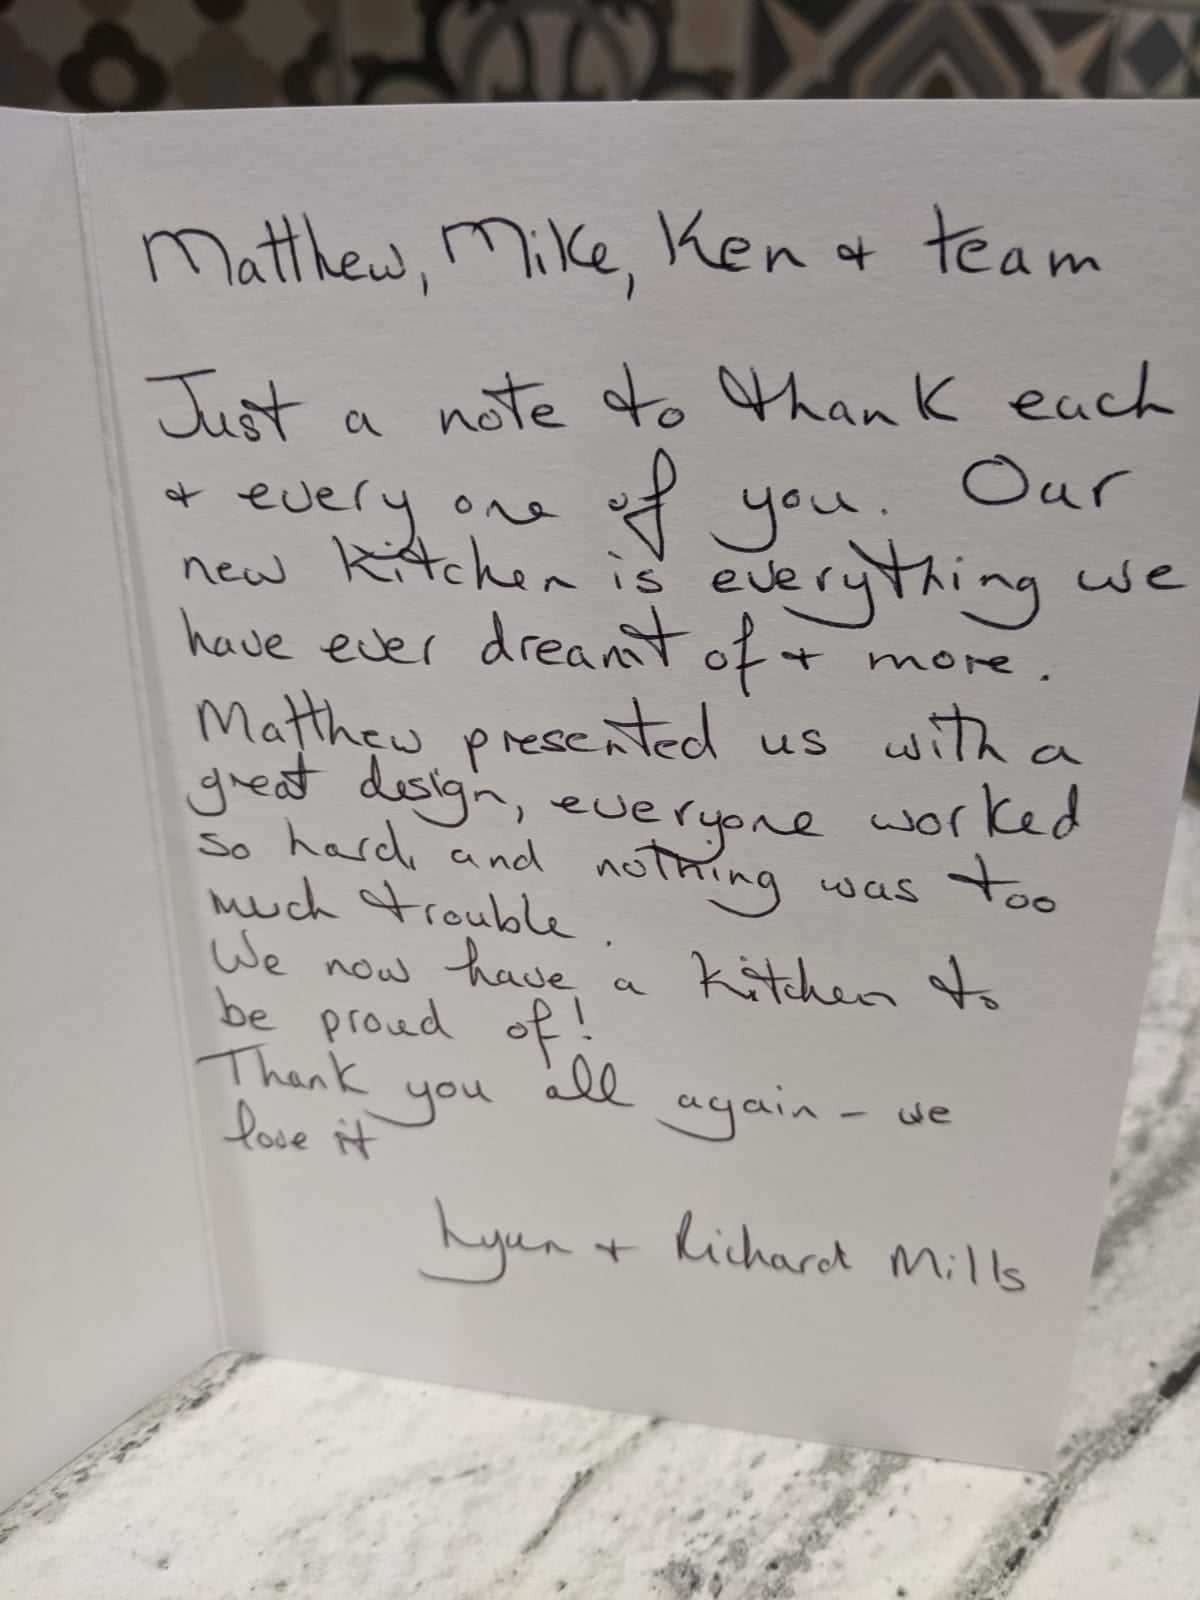 Matthew, Mike, Ken + team
Just a note to thank each
+ every one of you. Our
new kitchen is everything we
have ever dreamt of + more.
Matthew presented us with a
great design, everyone worked
so hard, and nothing was too
much trouble.
We now have a kitchen to
be proud of!
Thank you all again - we
love it
Lynn + Richard Mills